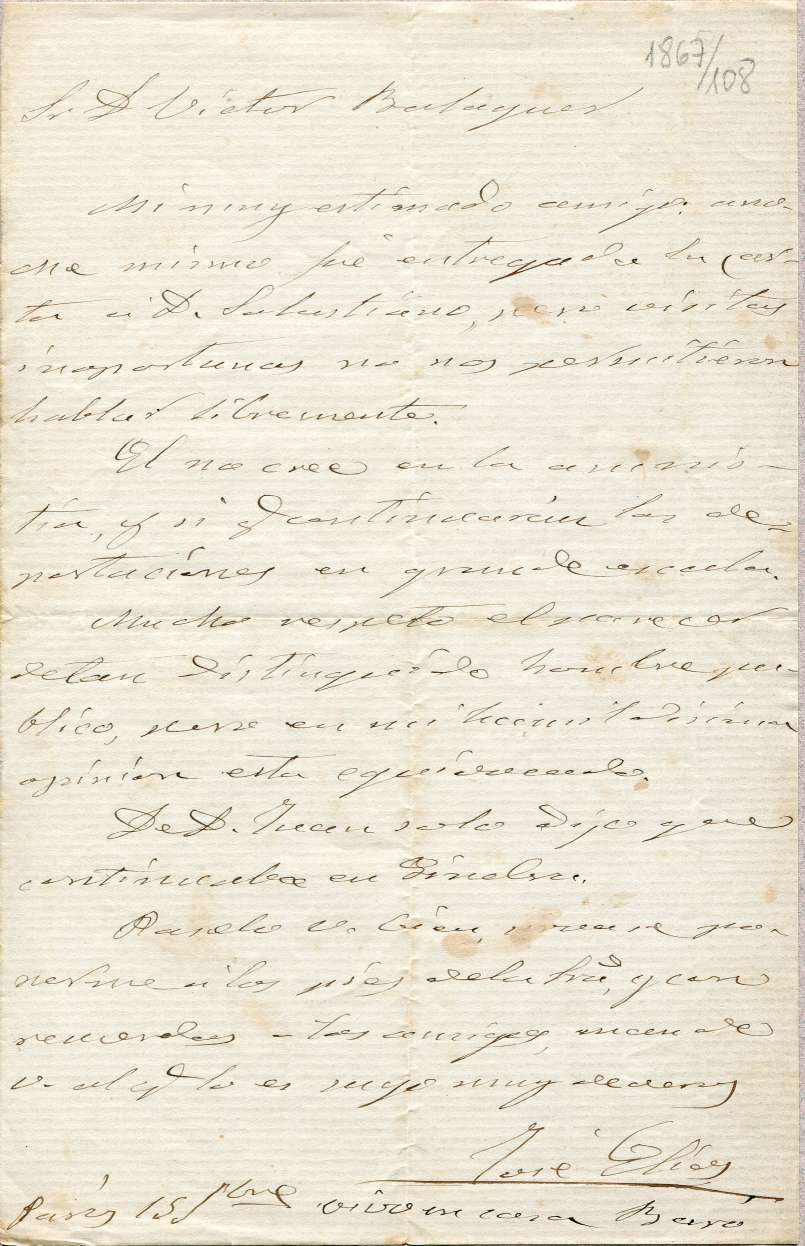 1867/108
Sr D Victor Balaguer
Mi muy estimado amigo: ano-
che mismo fué entregada la car-
ta a D. Salustiano, pero visitas
inoportunas no nos permitieron
hablar libremente.
El no cree en la amnis-
tia, y si q continuarán las de-
portaciones en grande escala.
Mucho respeto el parecer
de tan distinguido hombre pu-
blico, pero en mi humildisima
opinion esta equivocado.
De D. Juan solo dijo que
continuaba en Ginebra.
Paselo V. bien, sirvase po-
nerme a los piés de la Sra, y con
recuerdos a los amigos, mande
V. al q lo es suyo muy de veras
José Elias
Paris 15 vivo en casa Baró